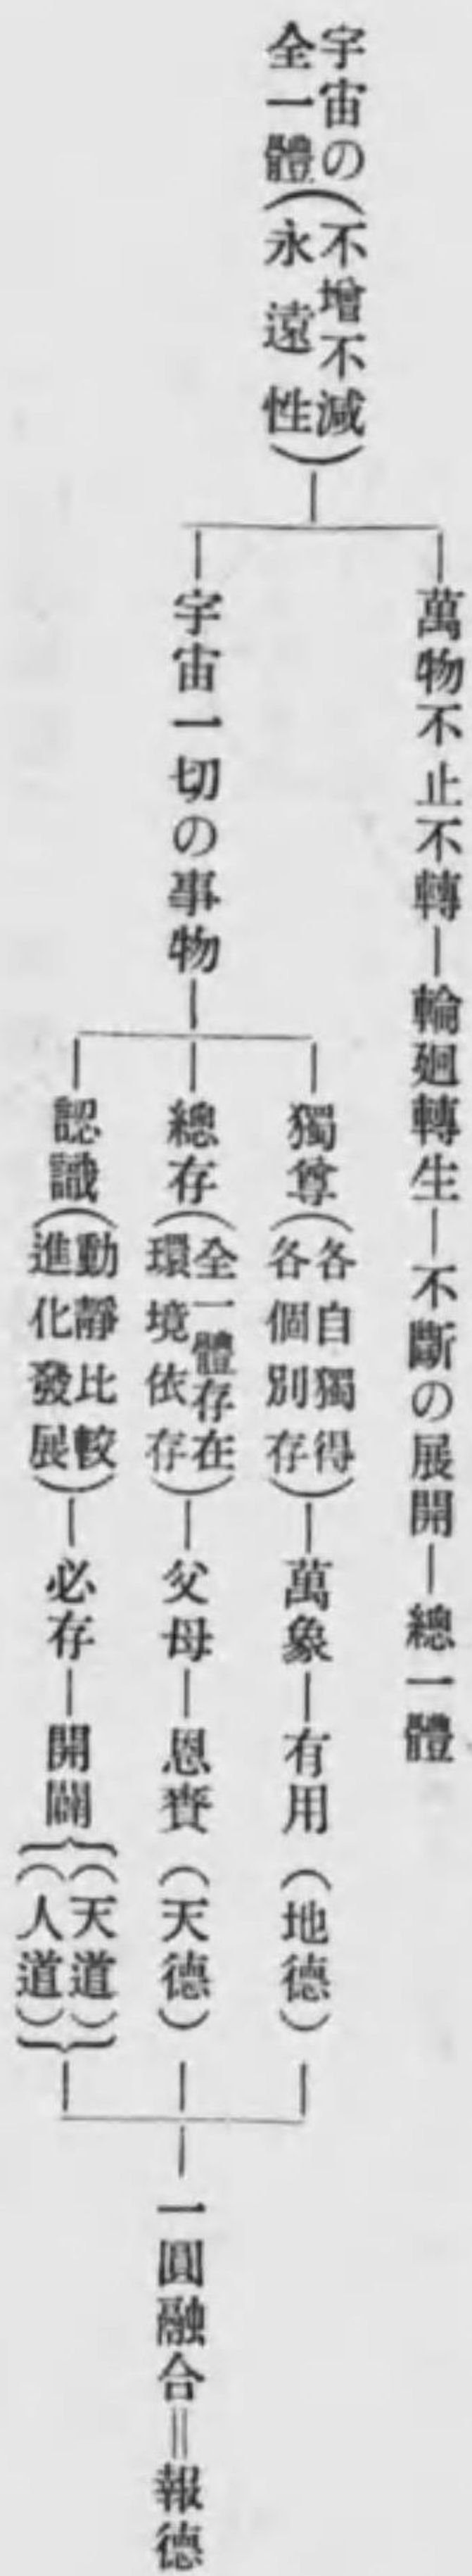 宇宙の全一體(不增不減 永遠性)
萬物不止不轉―輪廻轉生―不斷の展開―總一體
宇宙一切の事物
獨尊(各自獨得 各個別存)―萬象―有用(地德)
總存(全一體存在 環境依存)―父母―恩賚(天德)
認識(動靜比較 進化發展)―必存―開闢{(天道)(人道)}
一圓融合=報德